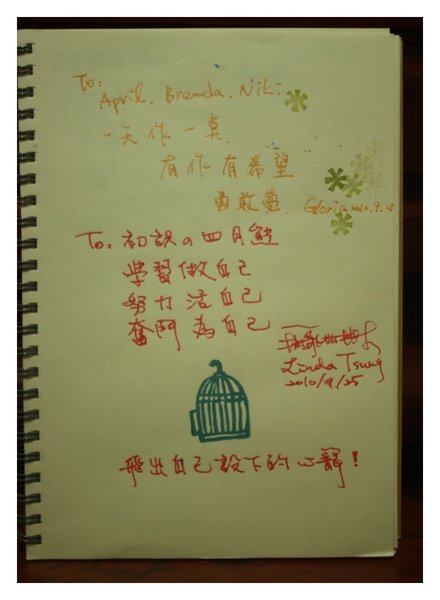 To:
April. Brenda. Niki:
一天作一桌
有作有希望
勇敢夢. Gloria 2010.9.25
To: 初識の四月鮭
學習做自己
努力活自己
奮鬥為自己
Linda Tsung
2010/9/25
飛出自己設下的心籠!